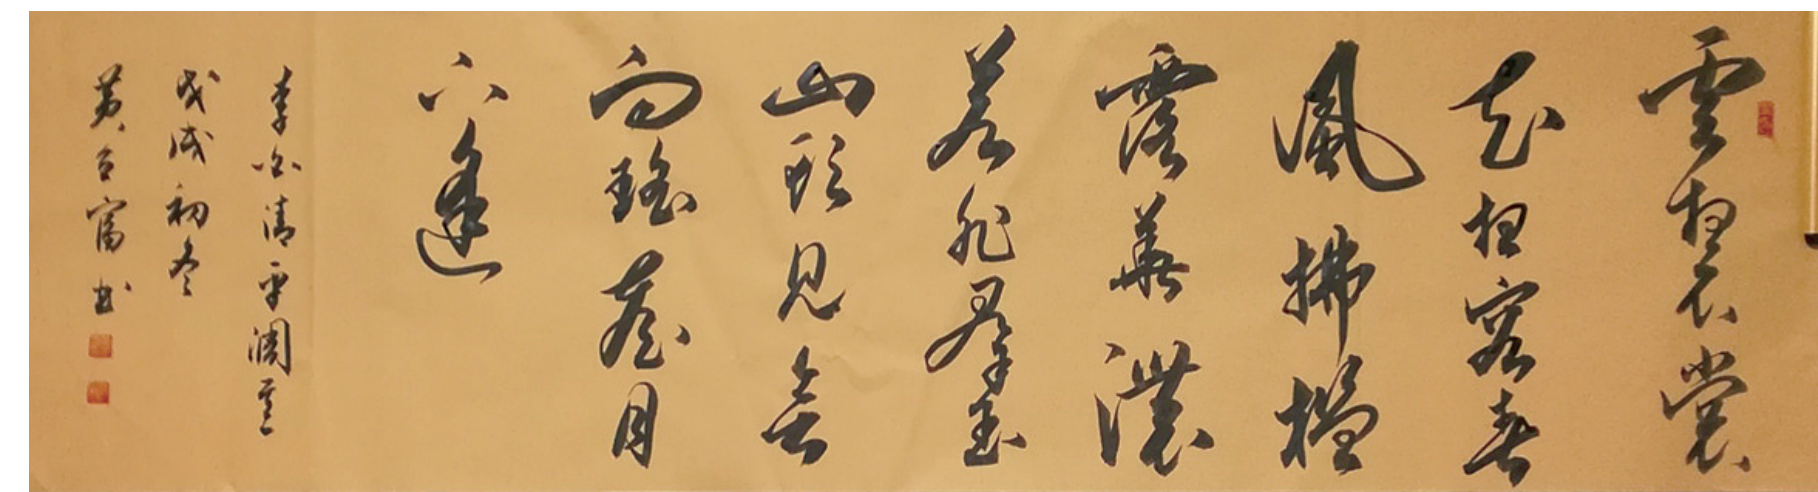 雲想衣裳
花想容春
風拂檻
露華濃
若非羣玉
山頭見會
向瑤臺月
下逢
李白清平調
戊戌初冬
黄富书